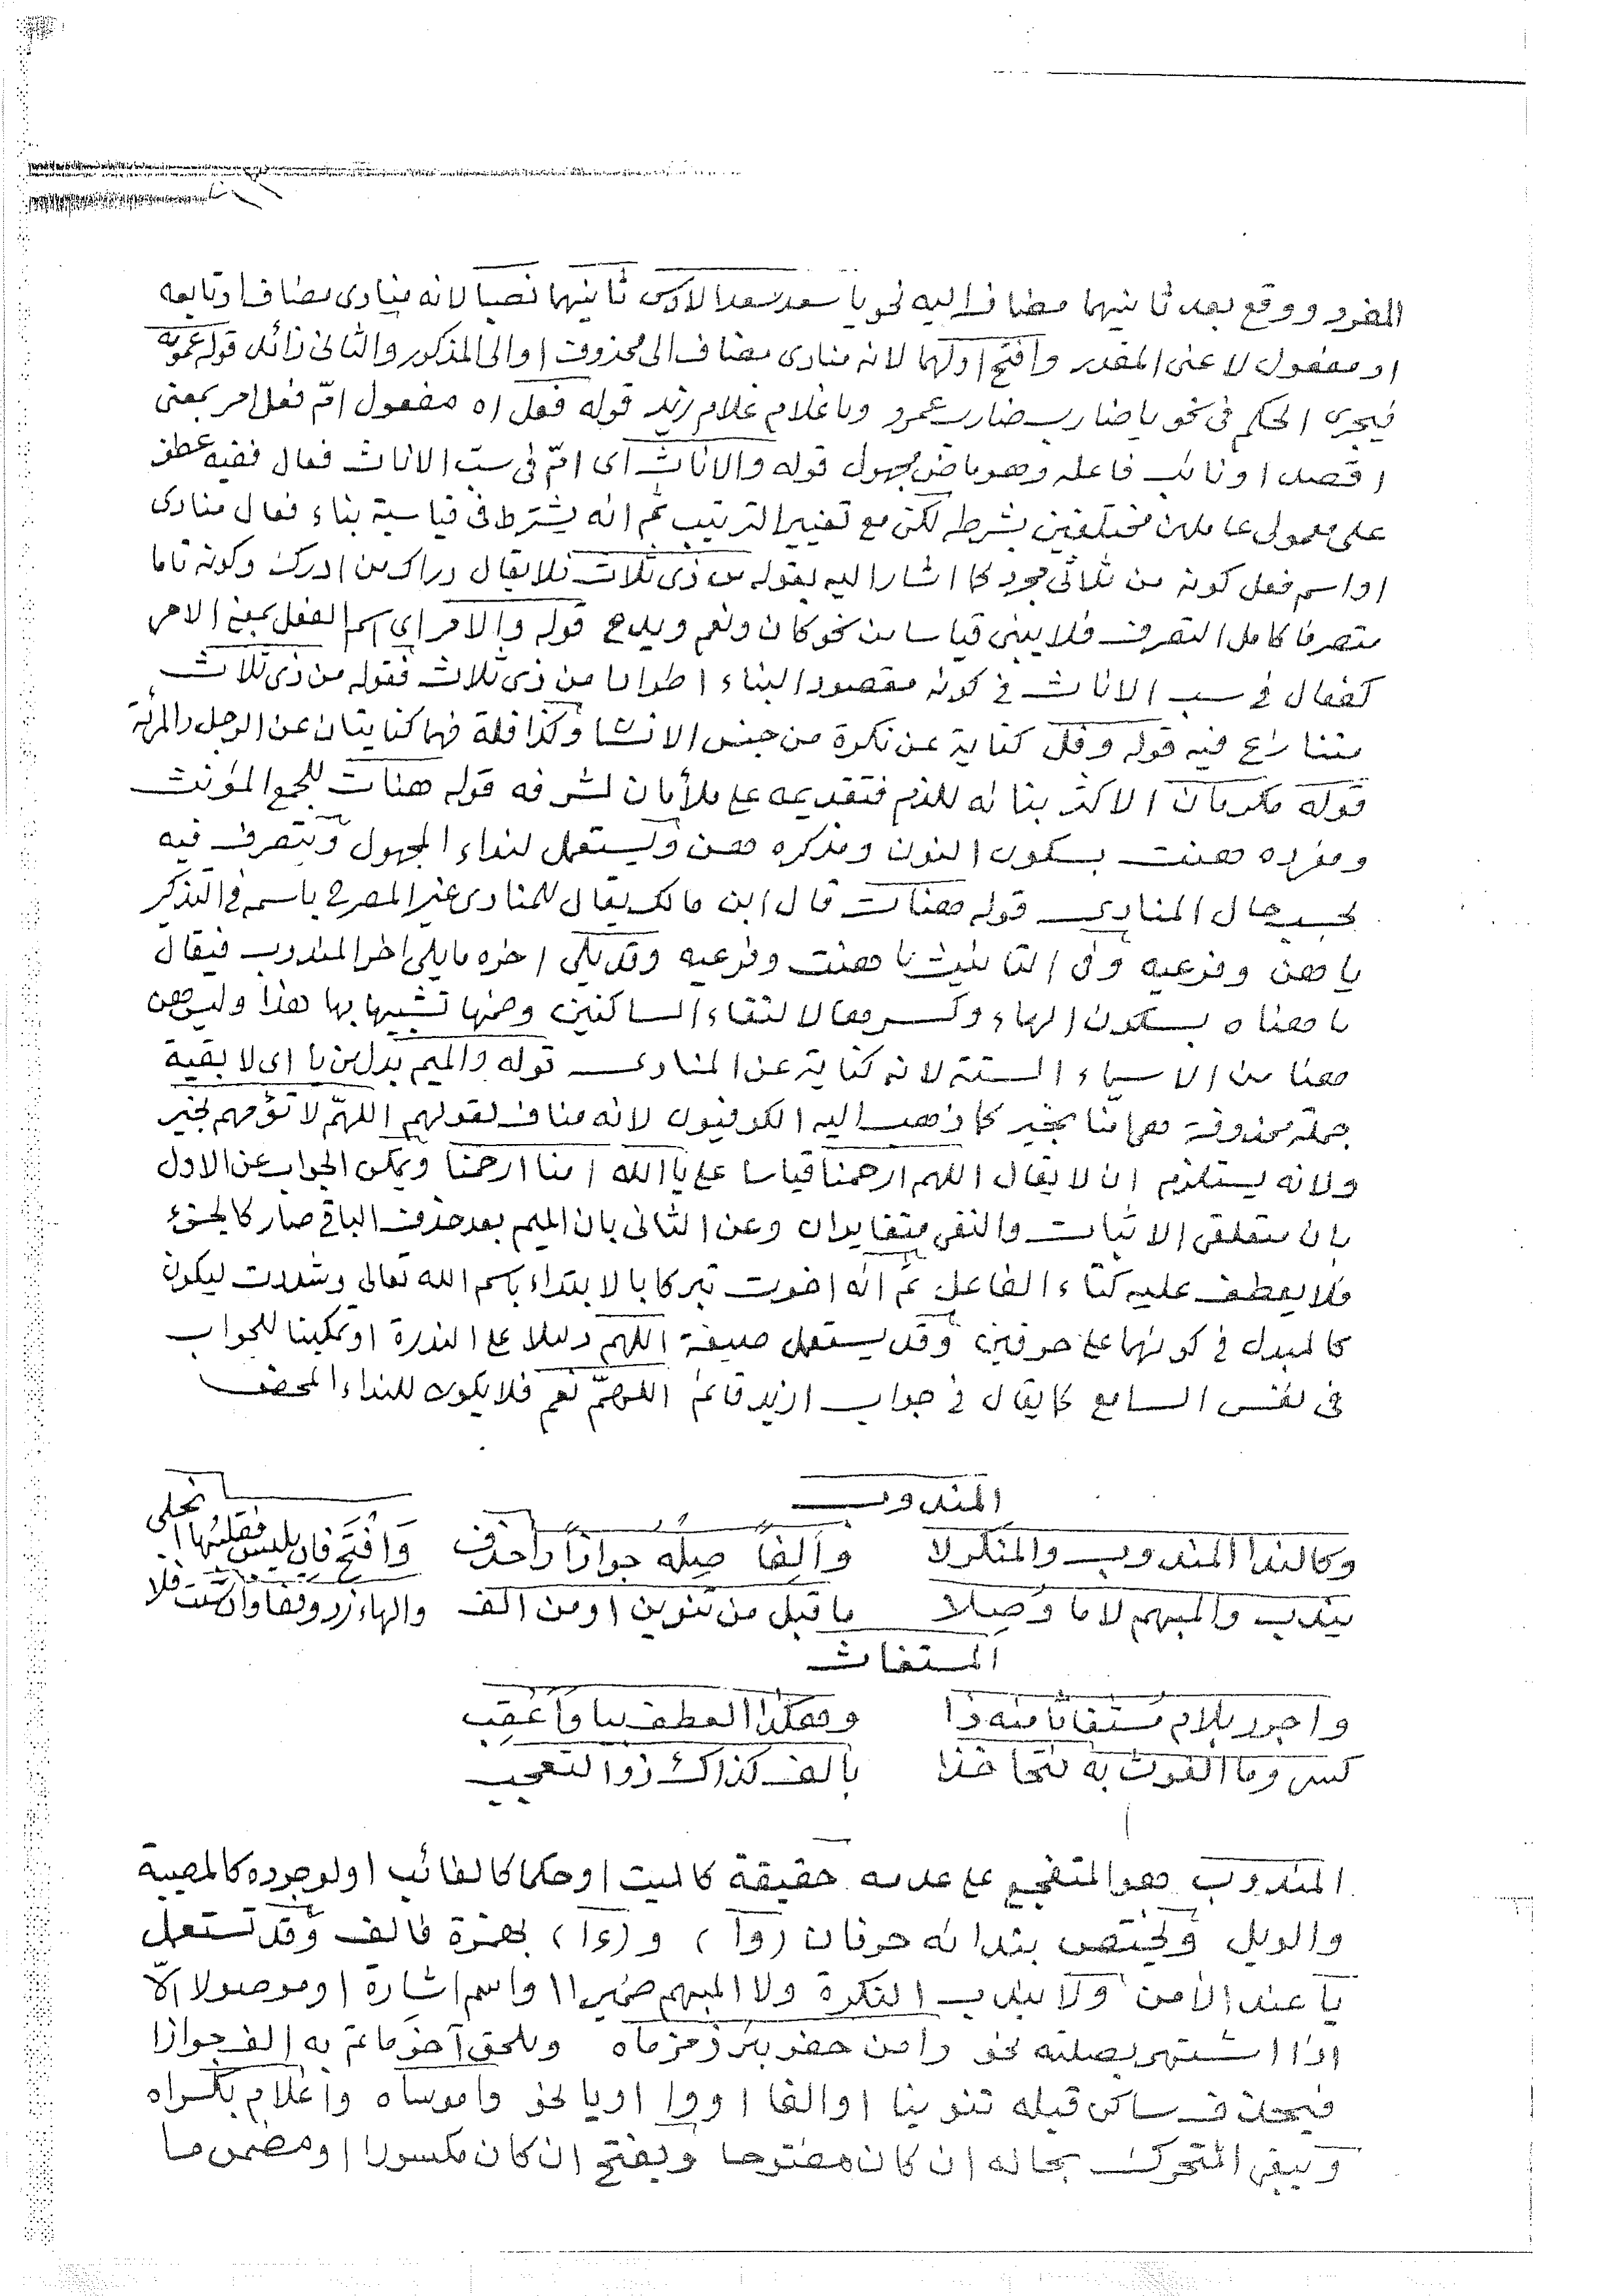 المفرد ووقع بعد ثانيهما مضاف اليه نحو يا سعد سعد الاوس ثانيهما نصبا لانه منادى مضافا وتابعه
او مفعول لا عنى المقدر وافتح اولهما لانه منادى مضاف الى محذوف او الى المذكور والثانى زائد قوله
فيجرى الحكم فى نحو يا ضارب ضارب عمرو ويا غلام غلام زيد قوله فعل اه مفعول امّ فعل امر بمعنى
اقصد او نائب فاعله وهو ماض مجهول قوله والاناث اى امّ فى سب الاناث فعال ففيه عطف
على معمولى عاملين مختلفين بشرطه لكن مع تغيير الترتيب ثم انه يشترط فى قياسية بناء فعال منادى
او اسم فعل كونه من ثلاثى مجرد كما اشار اليه بقوله من ذى ثلاث فلا يقال دراك من ادرك وكونه تاما
متصرفا كامل التصرف فلا يبنى قياسا من نحو كان ونعم ويدع قوله والامر اى اسم الفعل بمعنى الامر
كفعال فى سب الاناث فى كونه مقصود البناء اطرادا من ذى ثلاث فقوله من ذى ثلاث
متنازع فيه قوله وفل كناية عن نكرة من جنس الانسان وكذا فلة فهما كنايتان عن الرجل والمرئة
قوله مكرمان الاكثر بنائه للذم فتقديمه على ملأمان لشرفه قوله هنات للجمع المؤنث
ومفرده هنت بسكون النون ومذكره هن ويستعمل لنداء المجهول ويتصرف فيه
بحسب حال المنادى قوله هنات قال ابن مالك يقال للمنادى غير المصرح باسمه فى التذكير
يا هن وفرعيه وفى التانيث يا هنت وفرعيه وقد يلى اخره ما يلى اخر المندوب فيقال
يا هناه بسكون الهاء وكسرها لالتقاء الساكنين وضمها تشبيها بها هذا وليس هن
هنا من الاسماء الستة لانه كناية عن المنادى قوله والميم بدل من يا اى لا بقية
جملة محذوفة هى امّنا بخير كما ذهب اليه الكوفيون لانه مناف لقولهم اللهمّ لا تؤمهم بخير
ولانه يستلزم ان لا يقال اللهم ارحمنا قياسا على يا الله امنا ارحمنا ويمكن الجواب عن الاول
بان متعلقى الاثبات والنفى متغايران وعن الثانى بان الميم بعد حذف الباقى صار كالجزء
فلا يعطف عليه كتاء الفاعل ثم انه اخرت تبركا بالابتداء باسم الله تعالى وشددت ليكون
كالمبدل فى كونها على حرفين وقد يستعمل صيغة اللهم دليلا على الندرة او تمكينا للجواب
فى نفس السامع كما يقال فى جواب ازيد قائم اللهمّ نعم فلا يكون للنداء المحض
المندوب
وكالندا المندوب والمنكر لا وألفا صله جوازا واحذف وافتح فان يلبس فقلبها
يندب والمبهم لا ما وصلا ما قبل من تنوين او من الف والهاء زد وقفا وان شئت فلا
المستغاث
واجرر بلام مستغاثا منه ذا وهكذا العطف بيا وأعقب
كسر وما الغوث به لتحا خذا بألف كذاك ذو التعجب
المندوب هو المتفجع على عدمه حقيقة كالميت او حكما كالغائب او لوجوده كالمصيبة
والويل ويختص بندائه حرفان (وا) و (ءا) بهمزة فالف وقد تستعمل
يا عند الأمن ولا يندب النكرة ولا المبهم ضميرا او اسم اشارة او موصولا الّا
اذا اشتهر بصلته نحو وا من حفر بئر زمزماه ويلحق آخر ما تم به الف جوازا
فيحذف ساكن قبله تنوينا او الفا او واوا او يا نحو وا موساه وا غلام بكراه
ويبقى المتحرك بحاله ان كان مفتوحا ويفتح ان كان مكسورا او مضموما